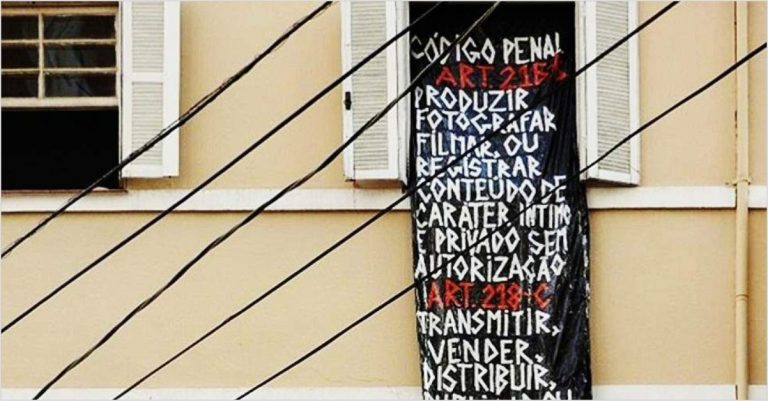 CÓDIGO PENAL
ART. 216-
PRODUZIR
FOTOGRAFAR
FILMAR, OU
REGISTRAR
CONTEÚDO DE
CARÁTER ÍNTIMO
E PRIVADO SEM
AUTORIZAÇÃO
ART. 218-C
TRANSMITIR,
VENDER,
DISTRIBUIR,